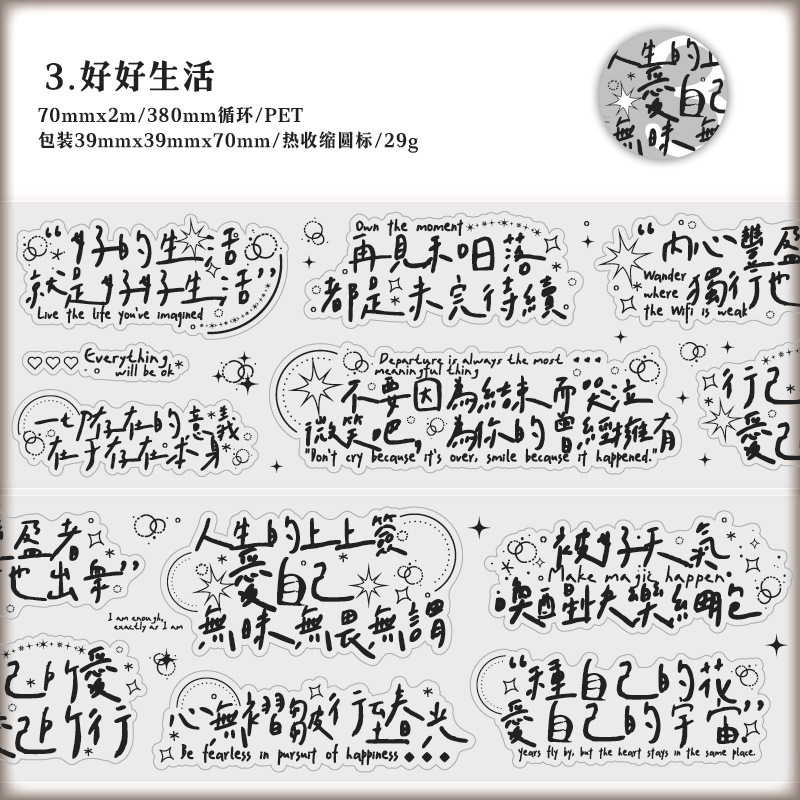 3.好好生活
70mmx2m/380mm循环/PET
包装39mmx39mmx70mm/热收缩圆标/29g
人生的上
愛自己
無味無
“好的生活
就是好好生活”
Live the life you've imagined
Own the moment
再見未咽落
都是未完待續
“內心豐盈
Wander
where
the Wifi is weak
獨行也
Everything
will be ok
一切存在的意義
在于存在本身
Departure is always the most
meaningful thing
不要因為結束而哭泣
微笑吧，為你的曾經擁有
"Don't cry because it's over, smile because it happened."
行己
愛己
盈者
也出眾”
I am enough,
exactly as I am
人生的上上籤
愛自己
無昧，無畏，無謂
被好天氣
Make magic happen
喚醒快樂細胞
心無褶皺行至春光
Be fearless in pursuit of happiness
“種自己的花
愛自己的宇宙”
Years fly by, but the heart stays in the same place.